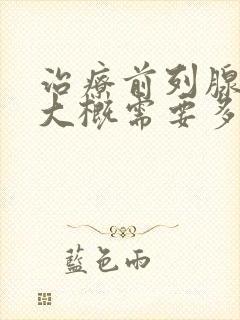 治療前列腺
大概需要多
藍色雨